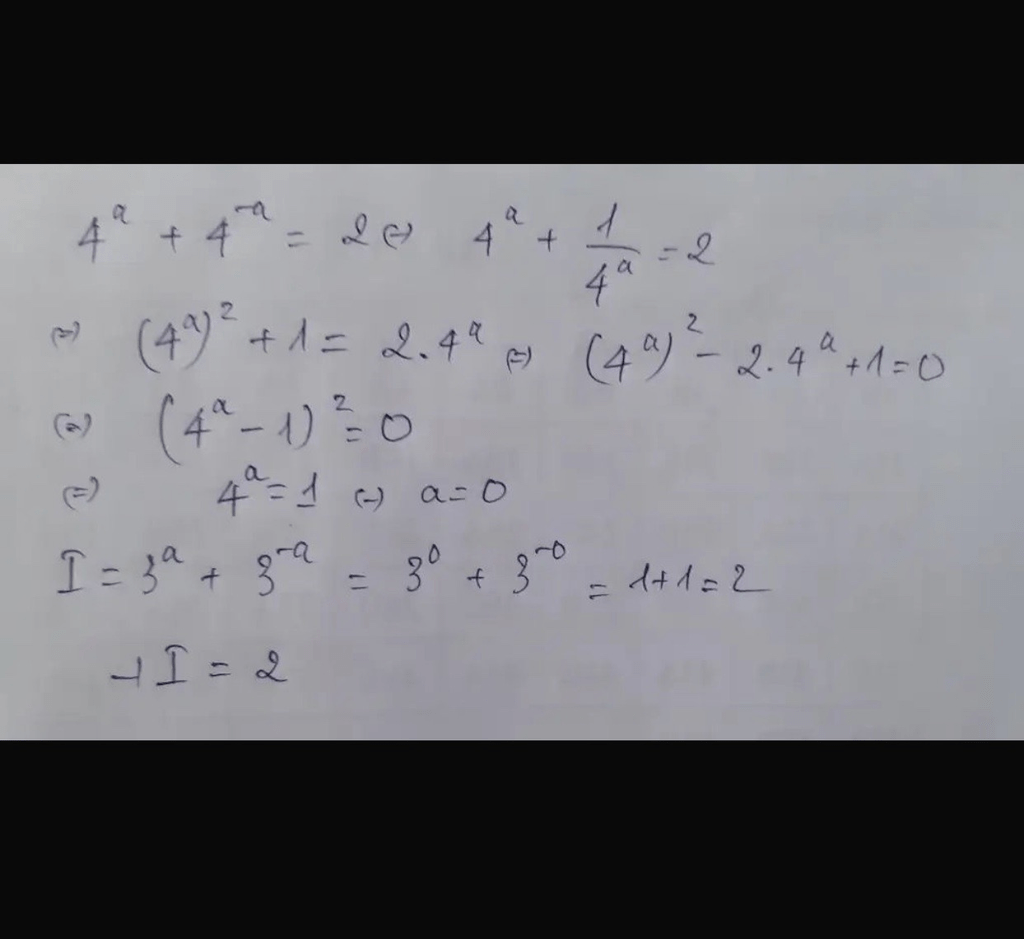 4^a + 4^-a = 2 (=) 4^a + 1/4^a = 2
(=) (4^a)^2 + 1 = 2.4^a (=) (4^a)^2 - 2.4^a + 1 = 0
(=) (4^a - 1)^2 = 0
(=) 4^a = 1 (=) a = 0
I = 3^a + 3^-a = 3^0 + 3^-0 = 1+1 = 2
→ I = 2